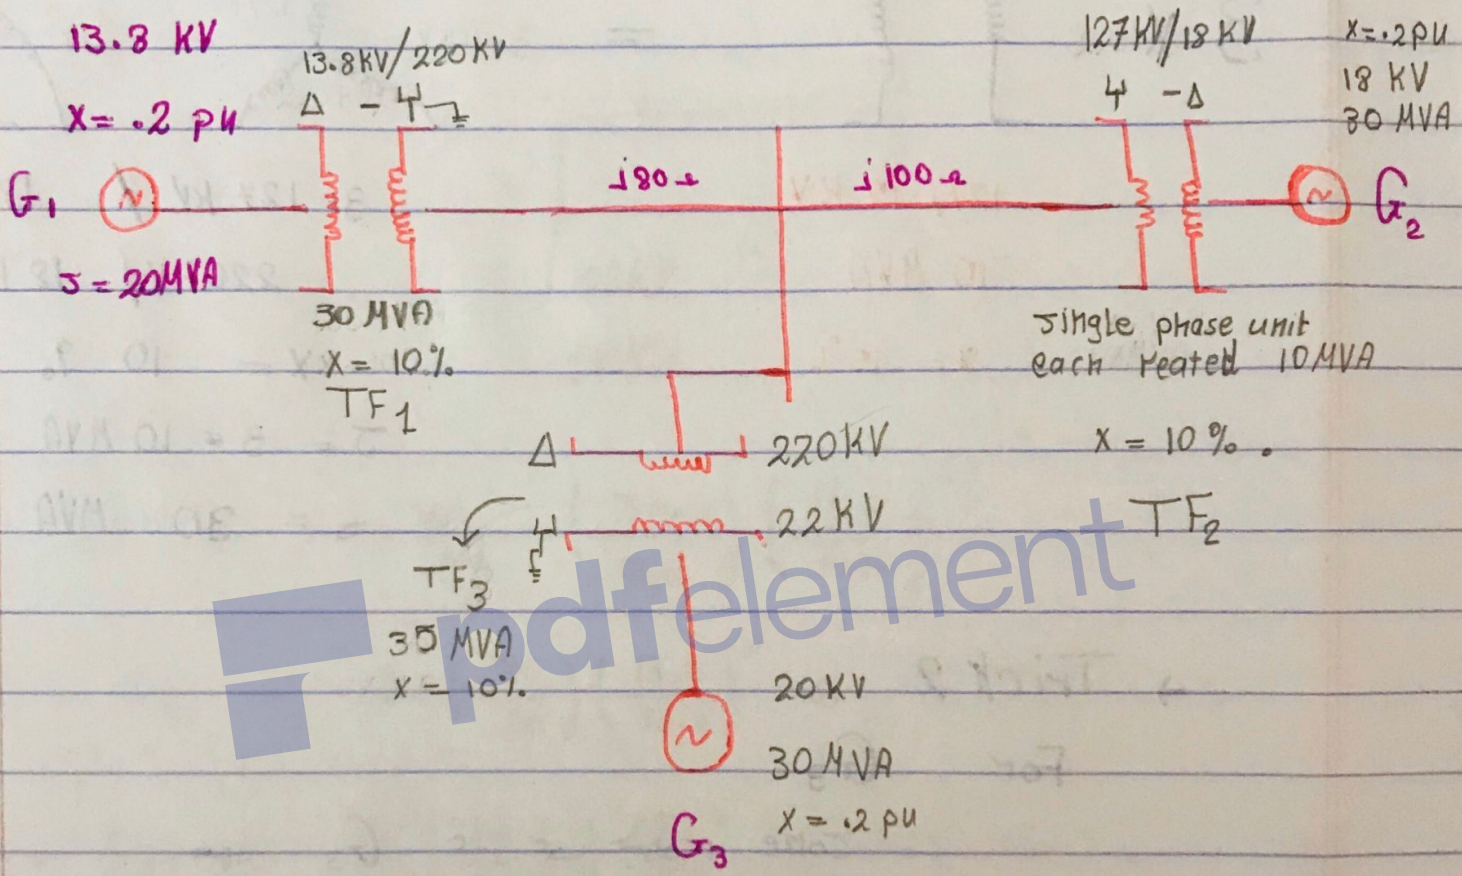 13.8 KV
X = .2 pu
G1
S = 20MVA
13.8KV/220KV
Δ - Y
30 MVA
X = 10%
TF1
j80Ω
j100Ω
127KV/18 KV
Y - Δ
X = .2pu
18 KV
30 MVA
G2
single phase unit
each reated 10MVA
X = 10%.
TF2
Δ
220KV
Y
22KV
TF3
35 MVA
X = 10%
20KV
30MVA
X = .2 pu
G3
pdfelement